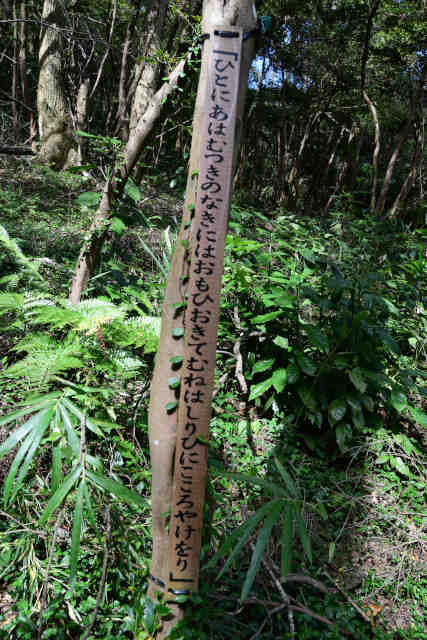 「ひとにあはむつきのなきにはおもひおきてむねはしりひにこころやけをり」